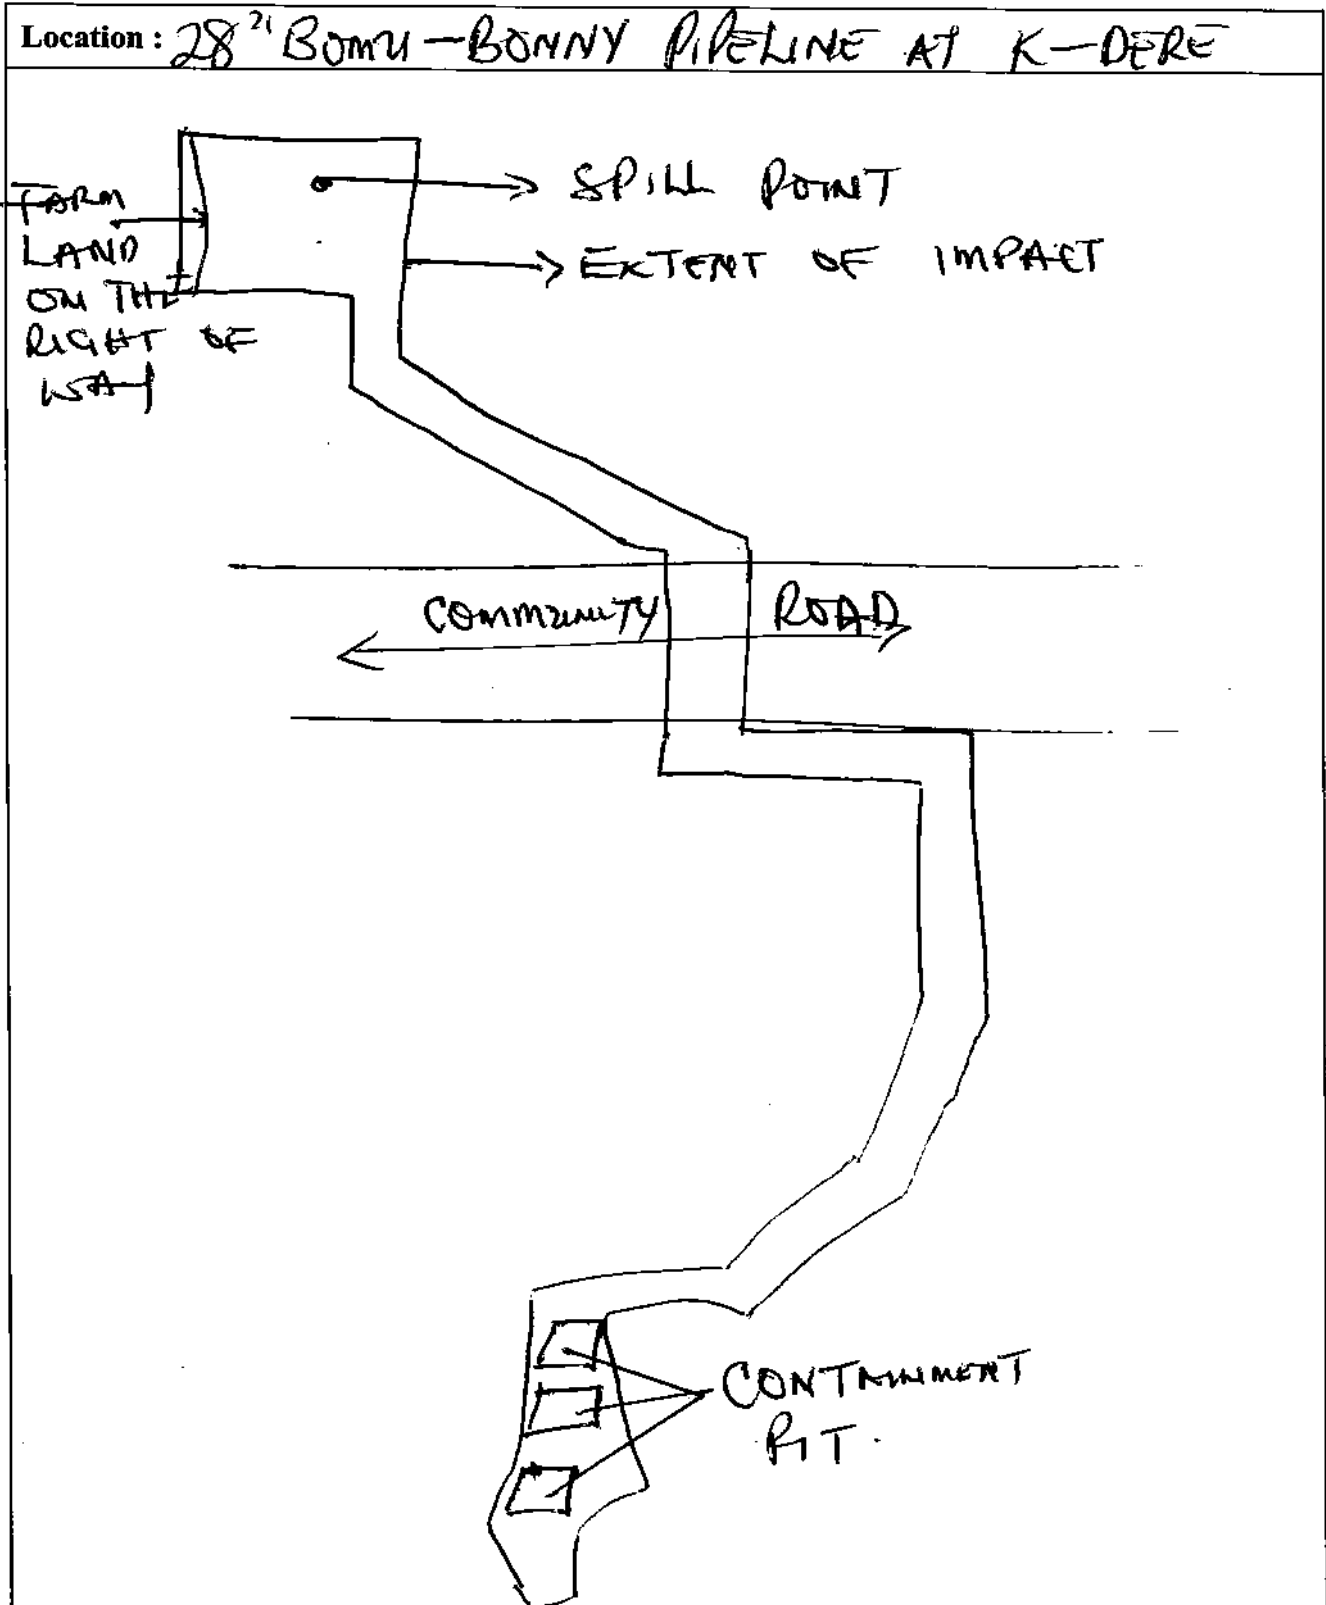 Location : 28" BOMU - BONNY PIPELINE AT K-DERE
SPILL POINT
FARM
LAND
ON THE
RIGHT OF
WAY
EXTENT OF IMPACT
COMMUNITY ROAD
CONTAINMENT
PIT.